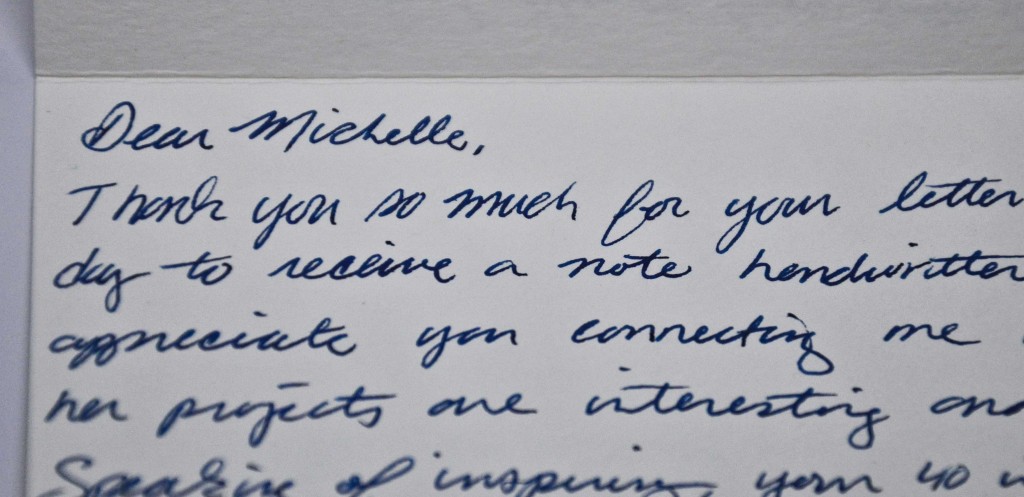 Dear Michelle,
Thank you so much for your letter
day to receive a note handwritten
appreciate you connecting me
her projects are interesting and
Speaking of inspiring, your 40